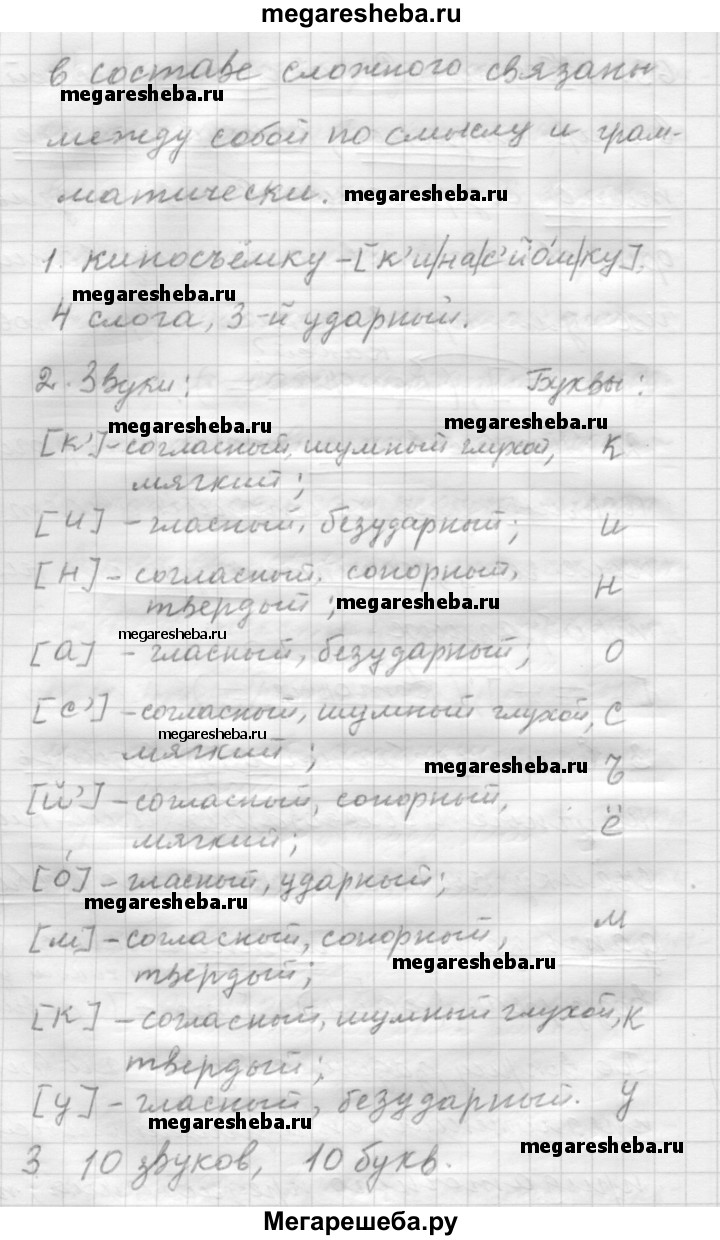 megaresheba.ru
в составе сложного связаны
megaresheba.ru
между собой по смыслу и грам-
матически. megaresheba.ru
1. киносъёмку – [к’и/на/с’й’о́м/ку],
megaresheba.ru
4 слога, 3-й ударный.
2. Звуки: Буквы:
megaresheba.ru megaresheba.ru
[к’] – согласный, шумный глухой, к
мягкий;
[и] – гласный, безударный; и
[н] – согласный, сонорный, н
твердый; megaresheba.ru
megaresheba.ru
[а] – гласный, безударный; о
[с’] – согласный, шумный глухой, с
megaresheba.ru
мягкий; megaresheba.ru ъ
[й’] – согласный, сонорный, ё
мягкий;
[о́] – гласный, ударный;
megaresheba.ru
[м] – согласный, сонорный, м
твердый; megaresheba.ru
[к] – согласный, шумный глухой, к
твердый;
[у] – гласный, безударный. у
megaresheba.ru
3 10 звуков, 10 букв. megaresheba.ru
Мегарешеба.ру